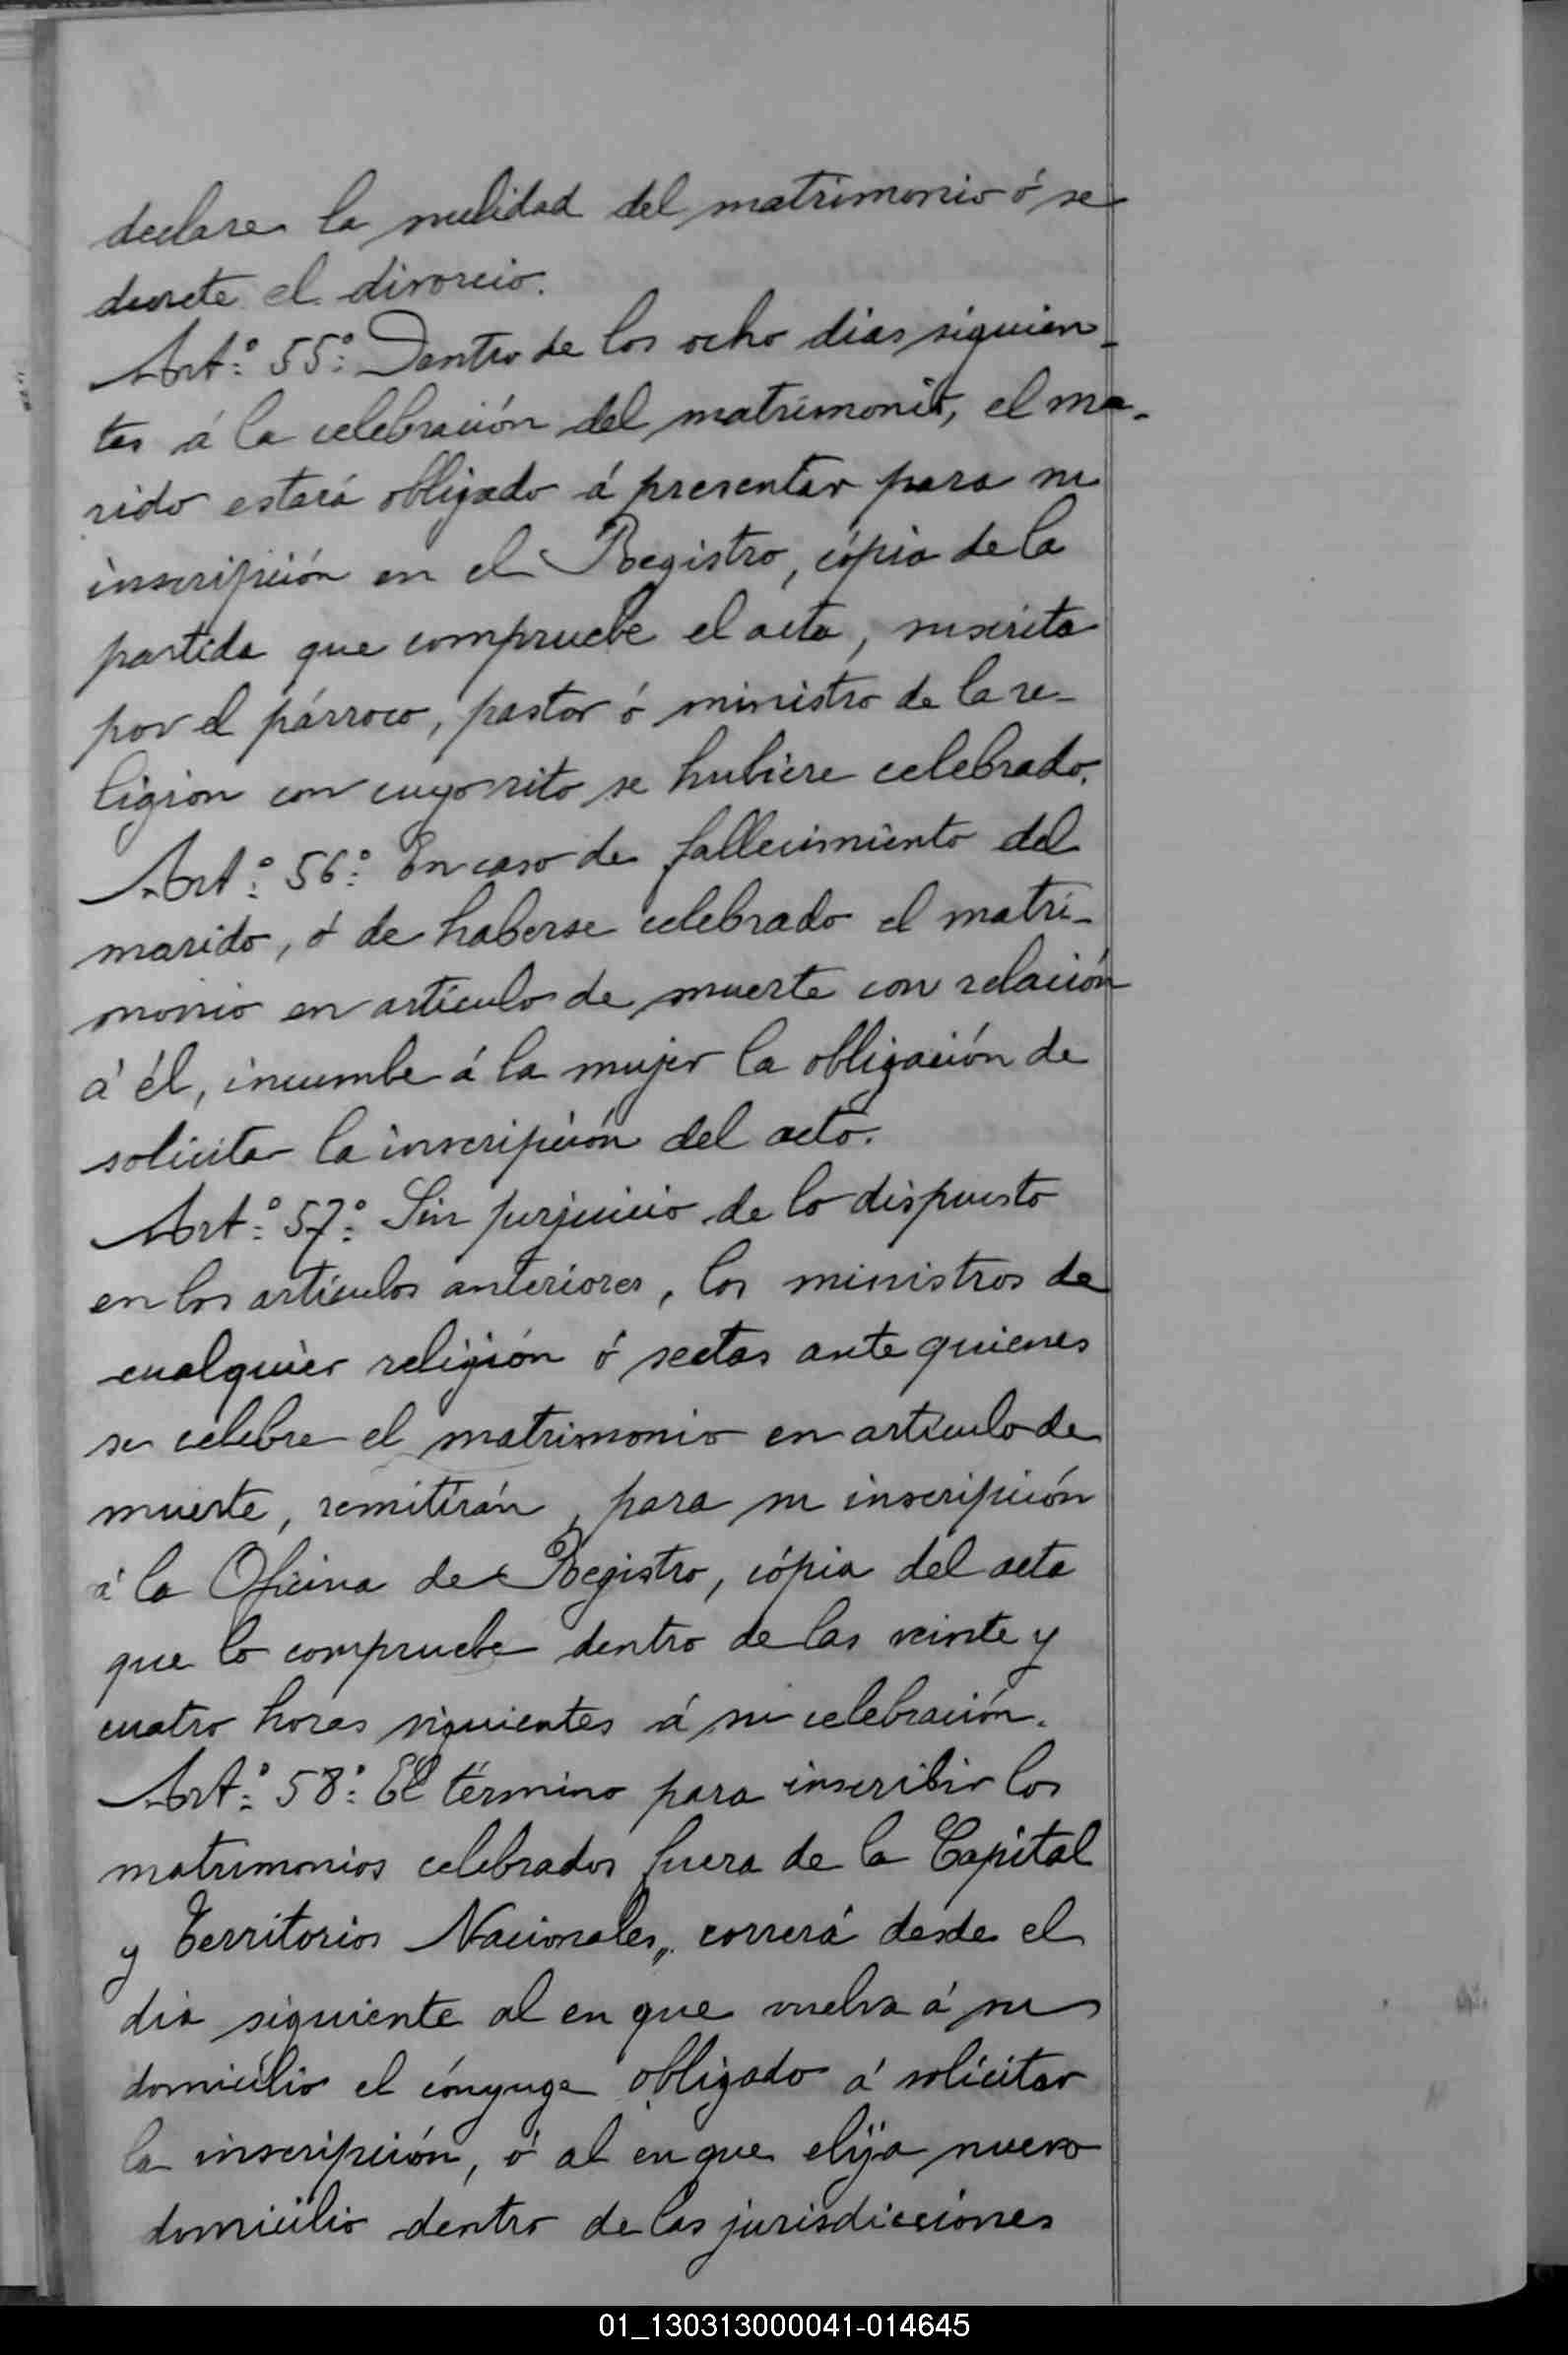 declare la nulidad del matrimonio ó se
decrete el divorcio.
Art.º 55º Dentro de los ocho dias siguien-
tes á la celebración del matrimonio, el ma-
rido estará obligado á presentar para su
inscripción en el Registro, cópia de la
partida que compruebe el acto, suscrita
por el párroco, pastor ó ministro de la re-
ligion con cuyo rito se hubiere celebrado.
Art.º 56º En caso de fallecimiento del
marido, ó de haberse celebrado el matri-
monio en artículo de muerte con relación
á él, incumbe á la mujer la obligación de
solicitar la inscripción del acto.
Art.º 57º Sin perjuicio de lo dispuesto
en los artículos anteriores, los ministros de
cualquier religión ó sectas ante quienes
se celebre el matrimonio en artículo de
muerte, remitirán, para su inscripción
á la Oficina de Registro, cópia del acta
que lo compruebe dentro de las veinte y
cuatro horas siguientes á su celebración.
Art.º 58º El término para inscribir los
matrimonios celebrados fuera de la Capital
y Territorios Nacionales, correrá desde el
dia siguiente al en que vuelva á su
domicilio el cónyuge obligado á solicitar
la inscripción, ó al en que elija nuevo
domicilio dentro de las jurisdicciones
01_130313000041-014645